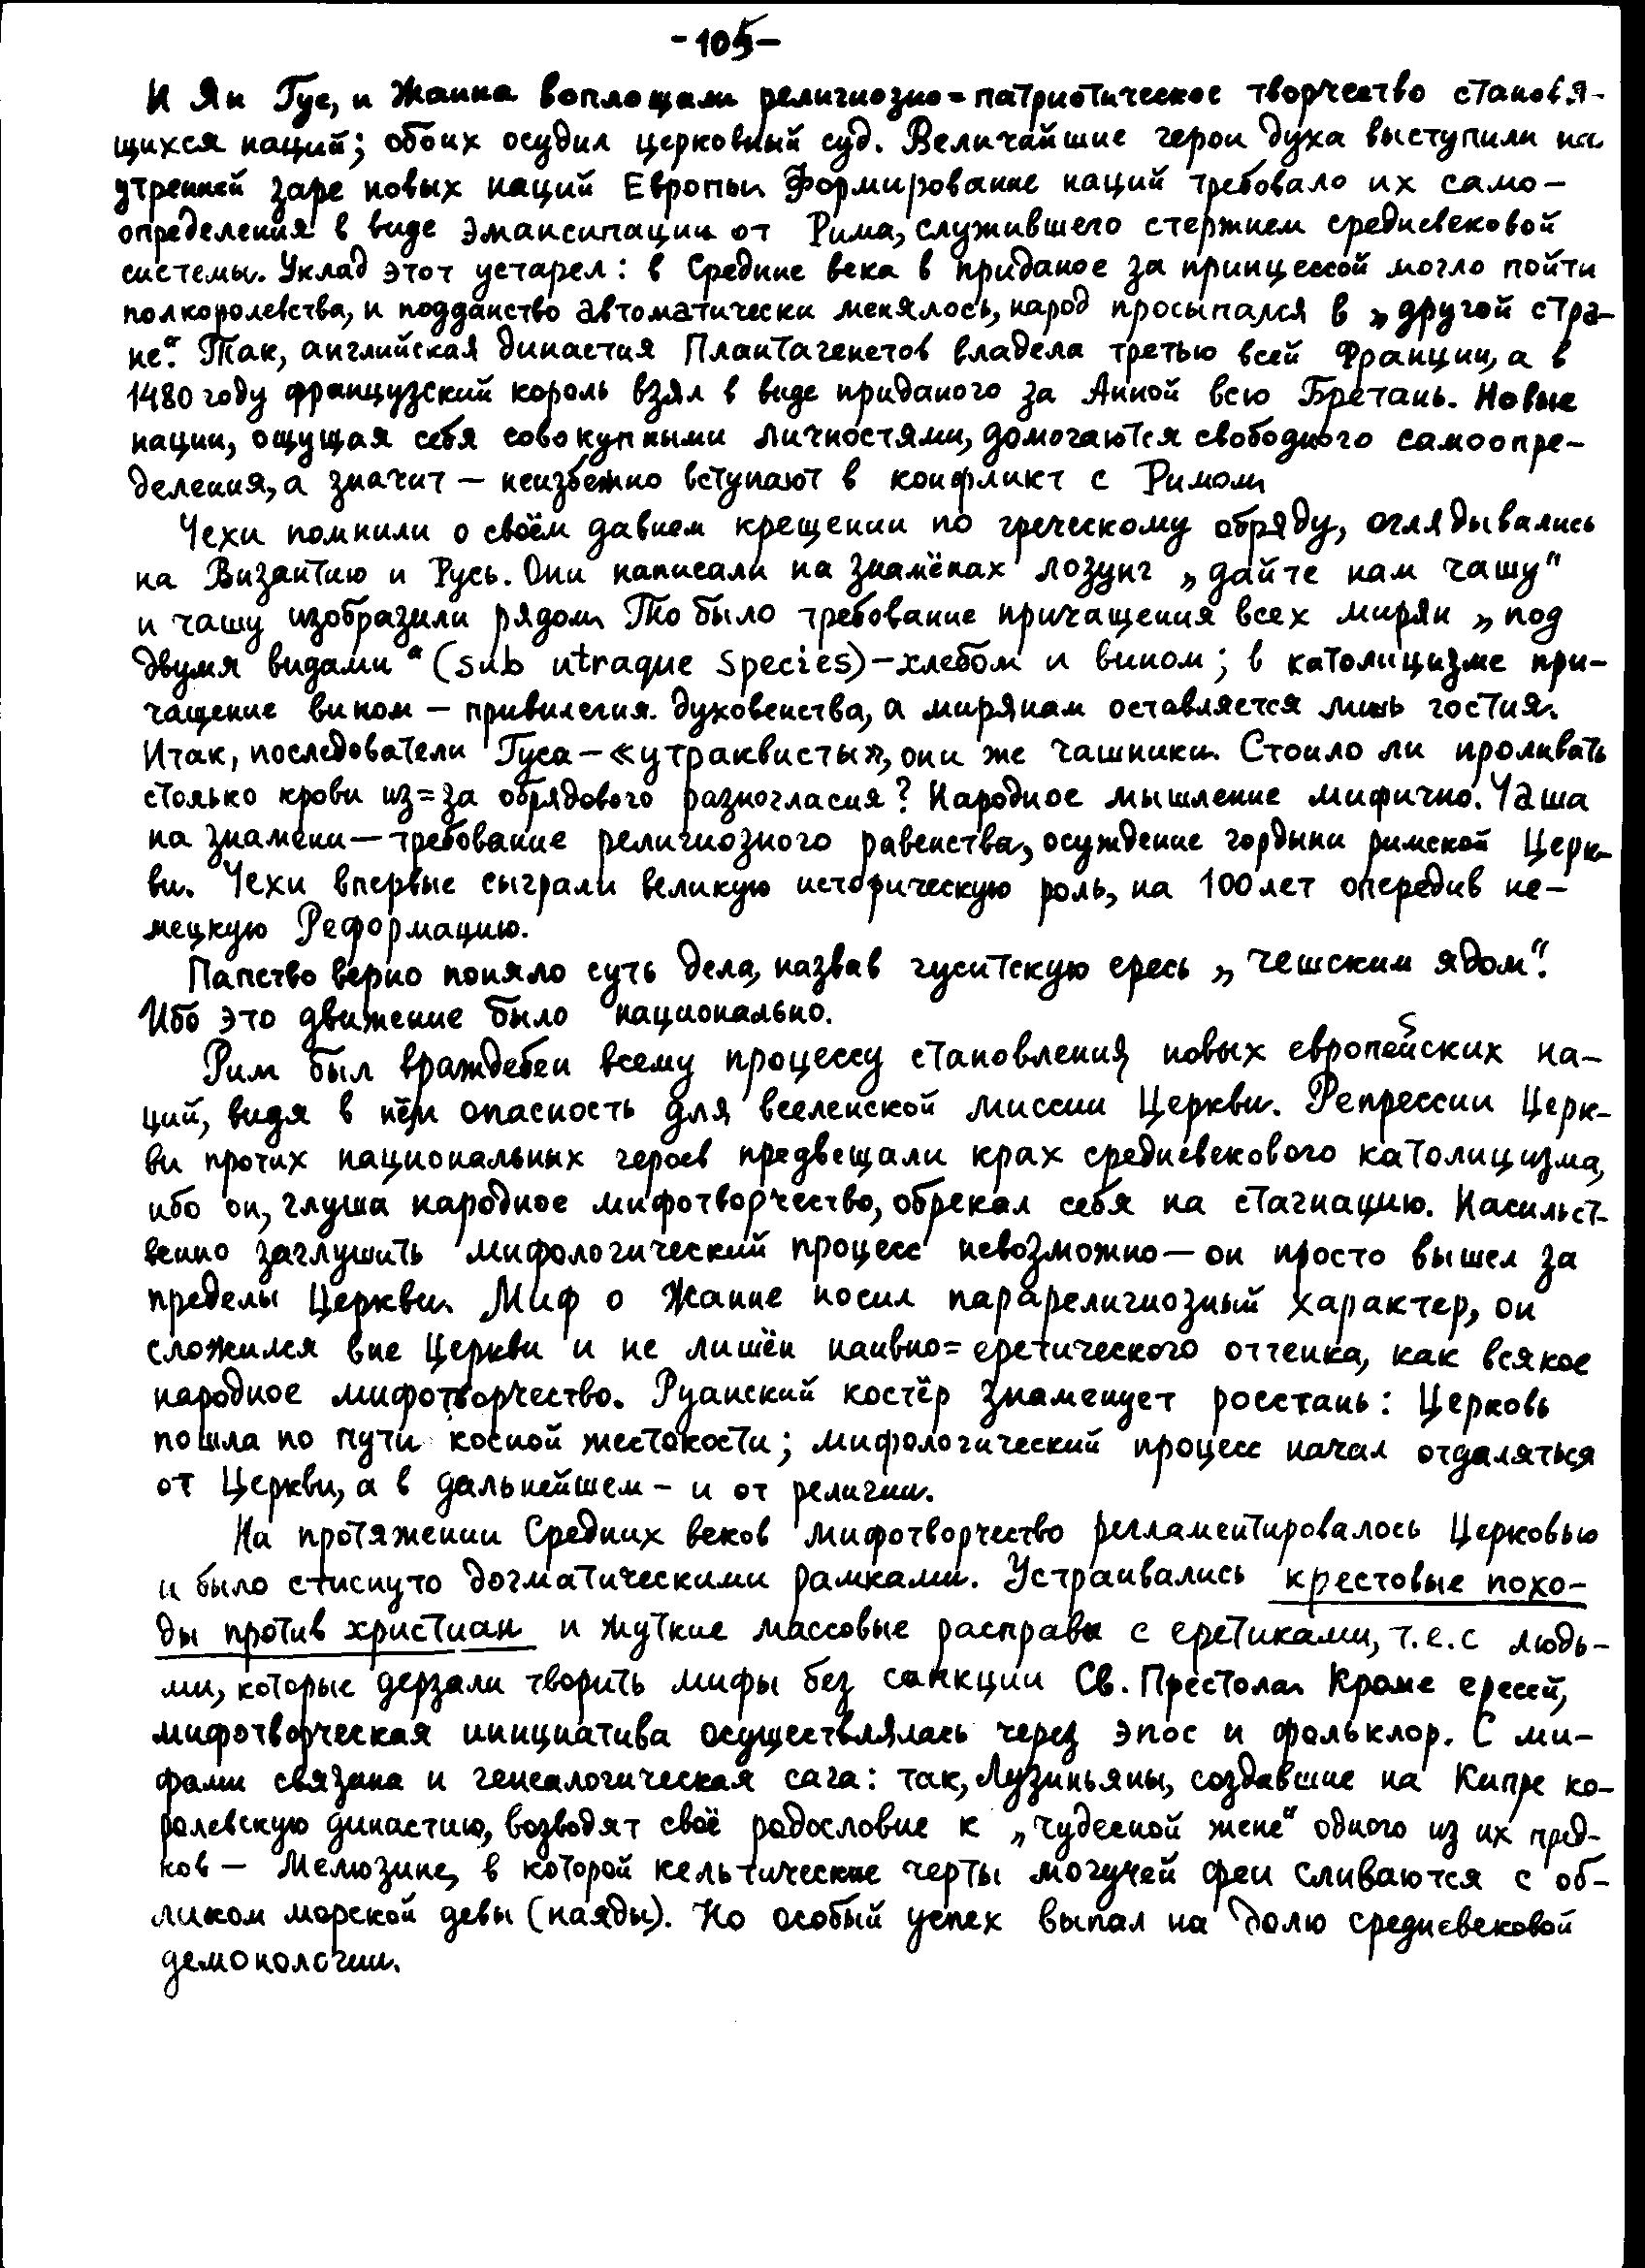 -105-
И Ян Гус, и Жанна воплощали религиозно=патриотическое творчество становя-
щихся наций; обоих осудил церковный суд. Величайшие герои духа выступили на
утренней заре новых наций Европы. Формирование наций требовало их само-
определения в виде эмансипации от Рима, служившего стержнем средневековой
системы. Уклад этот устарел: в Средние века в приданое за принцессой могло пойти
полкоролевства, и подданство автоматически менялось, народ просыпался в „другой стра-
не“. Так, английская династия Плантагенетов владела третью всей Франции, а в
1480 году французский король взял в виде приданого за Анной всю Бретань. Новые
нации, ощущая себя совокупными личностями, домогаются свободного самоопре-
деления, а значит — неизбежно вступают в конфликт с Римом.
Чехи помнили о своём давнем крещении по греческому обряду, оглядывались
на Византию и Русь. Они написали на знамёнах лозунг „дайте нам чашу“
и чашу изобразили рядом. То было требование причащения всех мирян „под
двумя видами“ (sub utraque species) — хлебом и вином; в католицизме при-
чащение вином — привилегия духовенства, а мирянам оставляется лишь гостия.
Итак, последователи Гуса — «утраквисты», они же чашники. Стоило ли проливать
столько крови из=за обрядового разногласия? Народное мышление мифично. Чаша
на знамени — требование религиозного равенства, осуждение гордыни римской Церк-
ви. Чехи впервые сыграли великую историческую роль, на 100 лет опередив не-
мецкую Реформацию.
Папство верно поняло суть дела, назвав гуситскую ересь „чешским ядом“.
Ибо это движение было национально.
Рим был враждебен всему процессу становления новых европейских на-
ций, видя в нём опасность для вселенской миссии Церкви. Репрессии Церк-
ви протих национальных героев предвещали крах средневекового католицизма,
ибо он, глуша народное мифотворчество, обрекал себя на стагнацию. Насильст-
венно заглушить мифологический процесс невозможно — он просто вышел за
пределы Церкви. Миф о Жанне носил парарелигиозный характер, он
сложился вне Церкви и не лишён наивно=еретического оттенка, как всякое
народное мифотворчество. Руанский костёр знаменует росстань: Церковь
пошла по пути косной жестокости; мифологический процесс начал отдаляться
от Церкви, а в дальнейшем — и от религии.
На протяжении Средних веков мифотворчество регламентировалось Церковью
и было стиснуто догматическими рамками. Устраивались крестовые похо-
ды против христиан и жуткие массовые расправы с еретиками, т.е. с людь-
ми, которые дерзали творить мифы без санкции Св. Престола. Кроме ересей,
мифотворческая инициатива осуществлялась через эпос и фольклор. С ми-
фами связана и генеалогическая сага: так, Лузиньяны, создавшие на Кипре ко-
ролевскую династию, возводят своё родословие к „чудесной жене“ одного из их пред-
ков — Мелюзине, в которой кельтические черты могучей феи сливаются с об-
ликом морской девы (наяды). Но особый успех выпал на долю средневековой
демонологии.